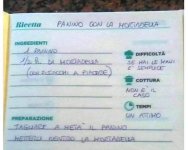 Ricetta PANINO CON LA MORTADELLA
INGREDIENTI
1 PANINO
1/2 K. DI MORTADELLA
(CON PISTACCHI A PIACERE)
DIFFICOLTÀ
SE HAI LE MANI
È SEMPLICE
COTTURA
NON È IL
CASO
TEMPI
UN ATTIMO
PREPARAZIONE
TAGLIARE A METÀ IL PANINO
METTERCI DENTRO LA MORTADELLA